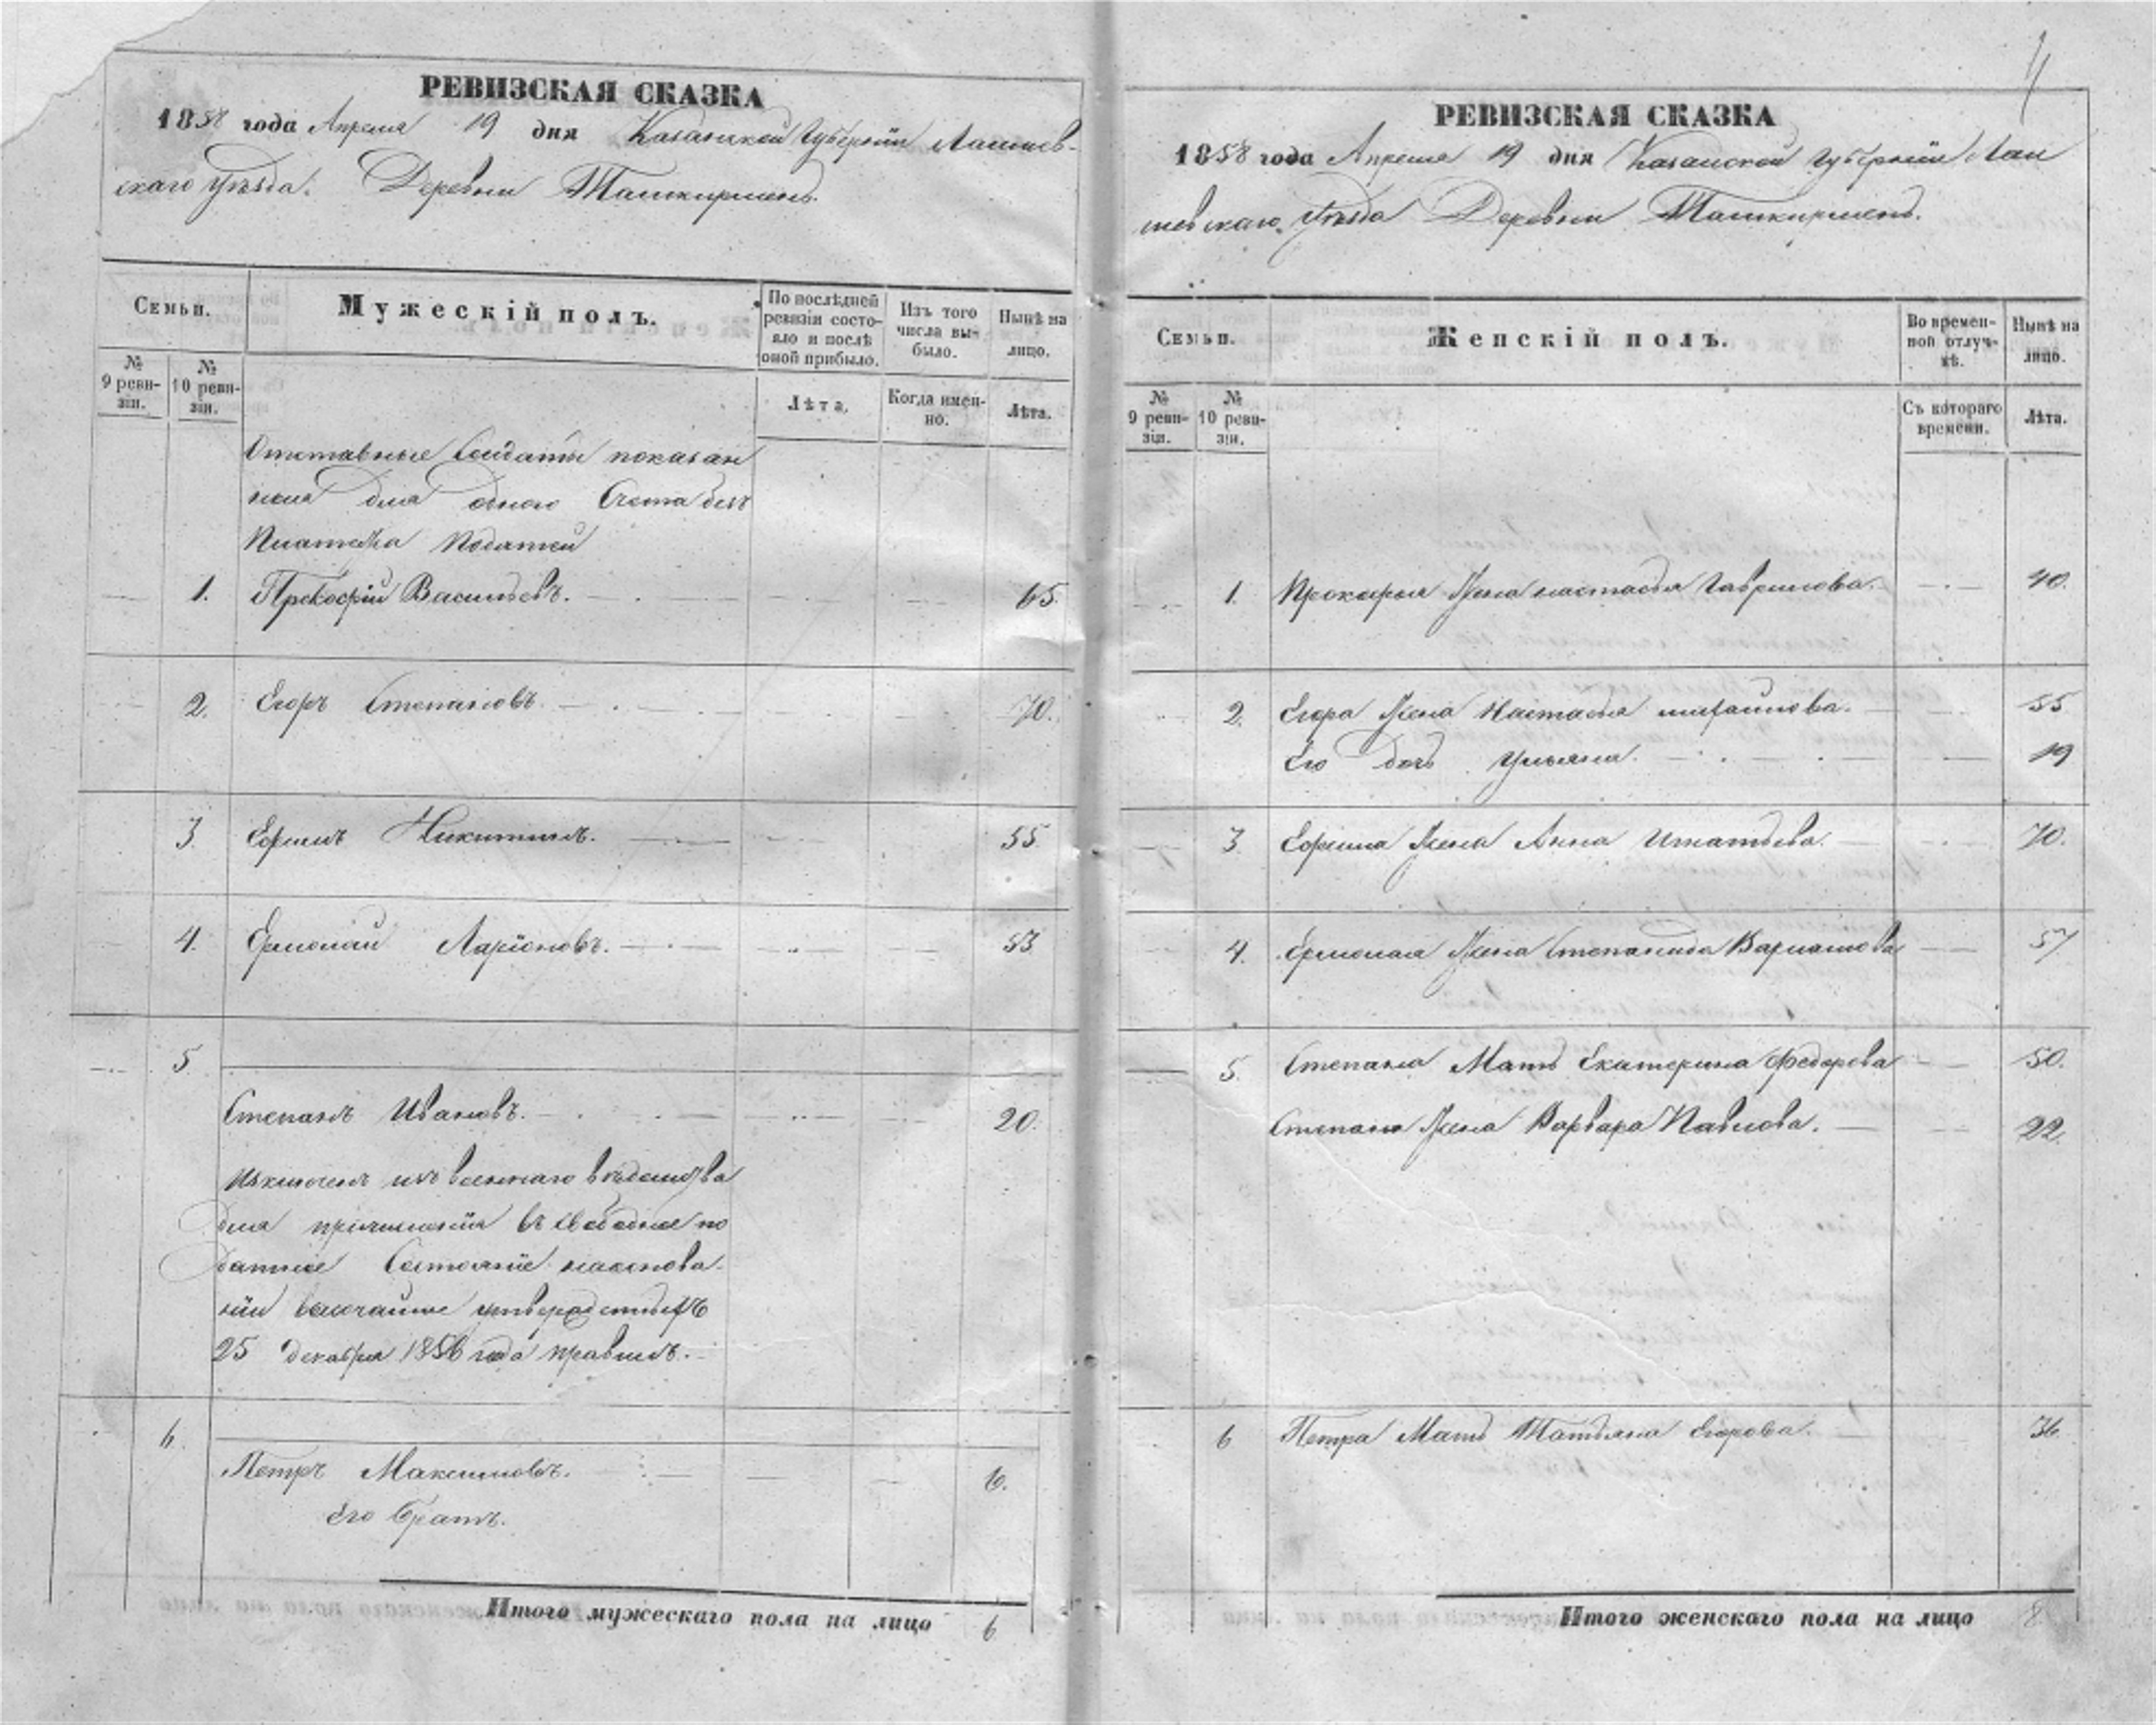 РЕВИЗСКАЯ СКАЗКА
1858 года Апреля 19 дня Казанской Губернїи Лаишев-
скаго Уѣзда. Деревни Ташкирмень.
Семьи.
Мужескій полъ.
По послѣдней ревизіи состо-
яло и послѣ оной прибыло.
Изъ того числа вы-
было.
Нынѣ на лицо.
№ 9 реви-
зіи.
№ 10 реви-
зіи.
Лѣта.
Когда имен-
но.
Лѣта.
Отставные Солдаты показан
ные для одного Счета безъ
Платежа Податей
1. Прокофій Васильевъ. 65.
2. Егоръ Степановъ. 70.
3. Ефимъ Никитинъ. 55.
4. Ермолай Ларіоновъ. 53
5
Степанъ Ивановъ. 20.
Изключенъ изъ военнаго вѣдомства
для причисленія въ свободное по
датное Состоянїе на основа-
нїи высочайше утвержденныхъ
25 декабря 1856 года правилъ.
6.
Петръ Максимовъ. 6.
Его братъ.
Итого мужескаго пола на лицо 6
РЕВИЗСКАЯ СКАЗКА
1858 года Апреля 19 дня Казанской Губернїи Лаи
шевскаго Уѣзда Деревни Ташкирмень.
Семьи.
Женскій полъ.
Во времен-
ной отлуч-
кѣ.
Нынѣ на лицо.
№ 9 реви-
зіи.
№ 10 реви-
зіи.
Съ котораго времени.
Лѣта.
1. Прокофья Жена настасья Гаврилова. 40.
2. Егора Жена Настасья михайлова. 55
Его дочь Ульяна. 19
3 Ефима Жена Анна Игнатьева. 70.
4. Ермолая Жена Степанида Варламова 57
5. Степана Мать Екатерина Федорова 50.
Степана Жена Варвара Павлова. 22.
6 Петра Мать Татьяна Егорова. 36.
Итого женскаго пола на лицо 8.